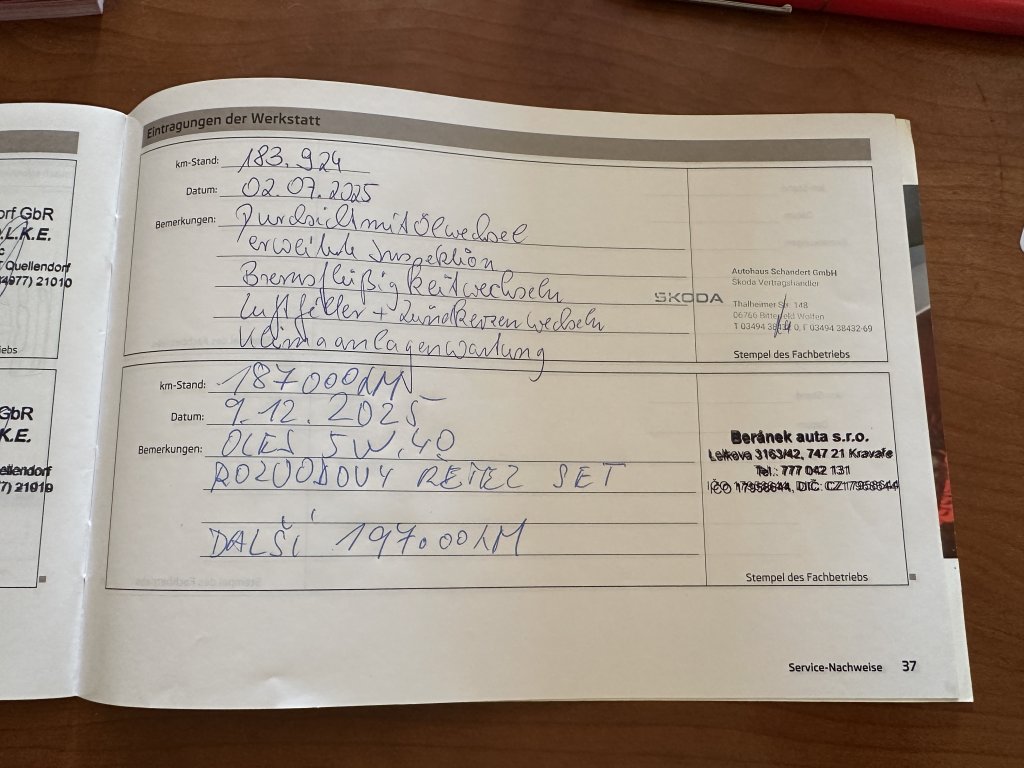 orf GbR
.L.K.E.
Quellendorf
4977) 21010
iebs
GbR
K.E.
ellendorf
7) 21010
Eintragungen der Werkstatt
km-Stand: 183.924
Datum: 02.07.2025
Bemerkungen: Durchsicht mit Ölwechsel
erweiterte Inspektion
Bremsflüßigkeitwechseln
Luftfilter + Zündkerzen wechseln
Klimaanlagenwartung
SKODA
Autohaus Schandert GmbH
Skoda Vertragshändler
Thalheimer Str. 148
06766 Bitterfeld Wolfen
T 03494 38432-0, F 03494 38432-69
Stempel des Fachbetriebs
km-Stand: 187000KM
Datum: 9.12.2025
Bemerkungen: OLEJ 5W.40
ROZVODOVÝ ŘETEZ SET
DALŠÍ 197.00KM
Beránek auta s.r.o.
Leitkova 3163/42, 747 21 Kravaře
Tel.: 777 042 131
IČO 17958644, DIČ: CZ17958644
Stempel des Fachbetriebs
Service-Nachweise 37